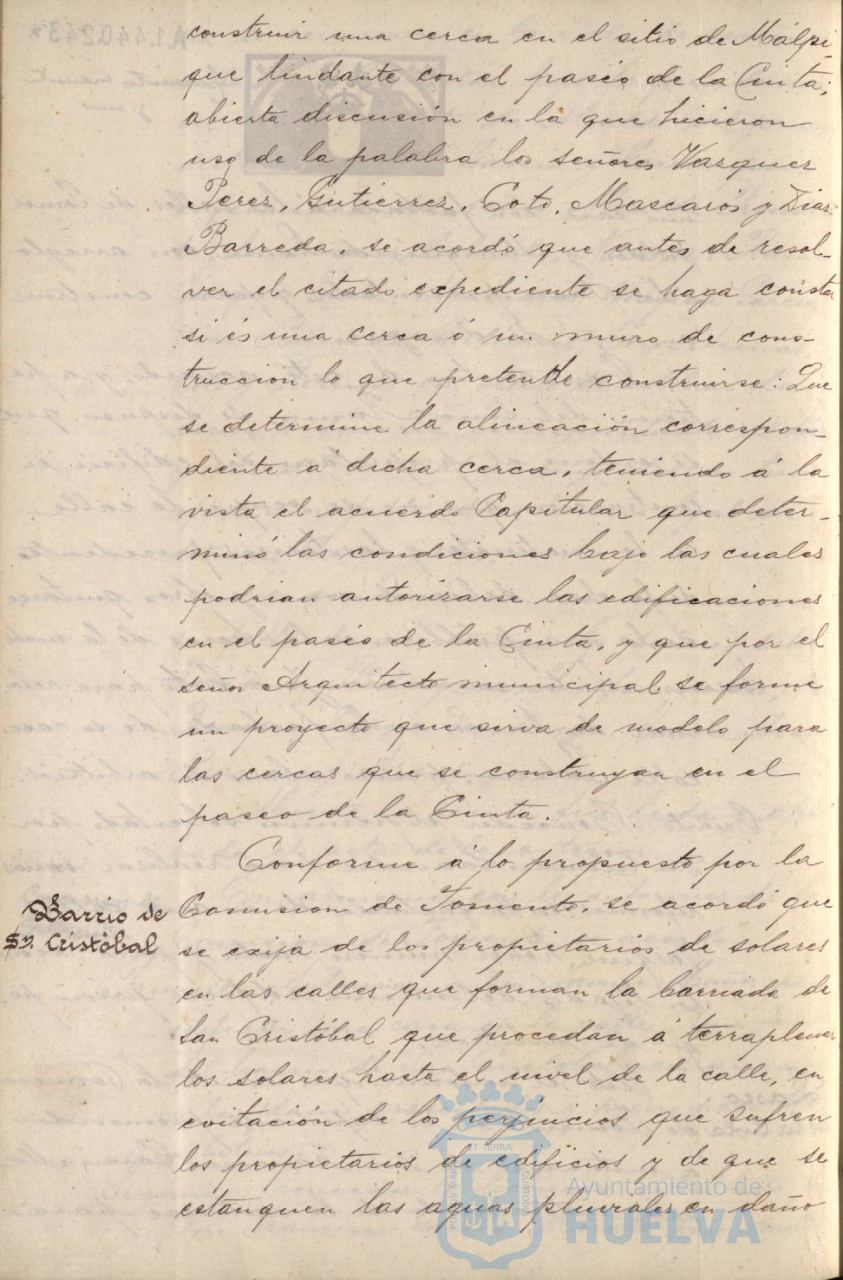 construir una cerca en el sitio de Malpi-
que lindante con el paseo de la Cinta;
abierta discusión en la que hicieron
uso de la palabra los señores Vazquez
Pérez, Gutierrez, Coto, Mascarós y Diaz
Barreda, se acordó que antes de resol-
ver el citado expediente se haga constar
si és una cerca ó un muro de cons-
trucción lo que pretende construirse: Que
se determine la alineación correspon-
diente á dicha cerca, teniendo á la
vista el acuerdo Capitular que deter-
minó las condiciones bajo las cuales
podrian autorizarse las edificaciones
en el paseo de la Cinta, y que por el
señor Arquitecto municipal se forme
un proyecto que sirva de modelo para
las cercas que se construyan en el
paseo de la Cinta.
Conforme á lo propuesto por la
Barrio de
Sn. Cristóbal
Comision de Fomento, se acordó que
se exija de los propietarios de solares
en las calles que forman la barriada de
San Cristóbal que procedan á terraplenar
los solares hasta el nivel de la calle, en
evitación de los perjuicios que sufren
los propietarios de edificios y de que se
estanquen las aguas pluviales en daño
Ayuntamiento de
HUELVA